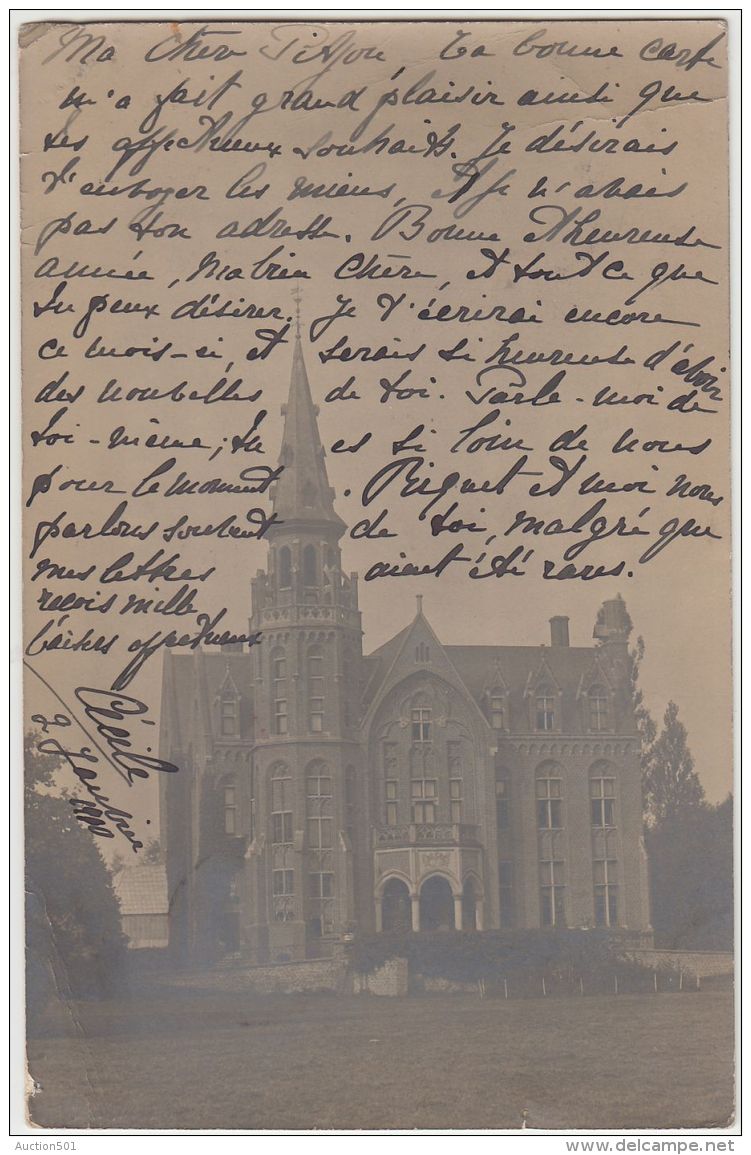 Ma chère Pitjou, Ta bonne carte
m'a fait grand plaisir ainsi que
tes affectueux souhaits. Je désirais
t'envoyer les miens, Mais je n'avais
pas ton adresse. Bonne et heureuse
année, Ma bien chère, et tout ce que
tu peux désirer. Je t'écrirai encore
ce mois-ci, et serais si heureuse d'avoir
des nouvelles de toi. Parle-moi de
toi-même; tu es si loin de nous
pour le moment. Riquet et moi nous
parlons souvent de toi, malgré que
mes lettres aient été rares.
reçois mille
baisers affectueux
Cécile
2 Janvier
Auction501
www.delcampe.net